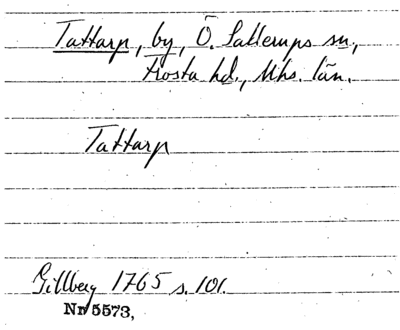 Tattarp, by, Ö. Sallerups sn,
Frosta hd., Mhs. län.
Tattarp
Gillberg 1765 s. 101.
Nr 5573,